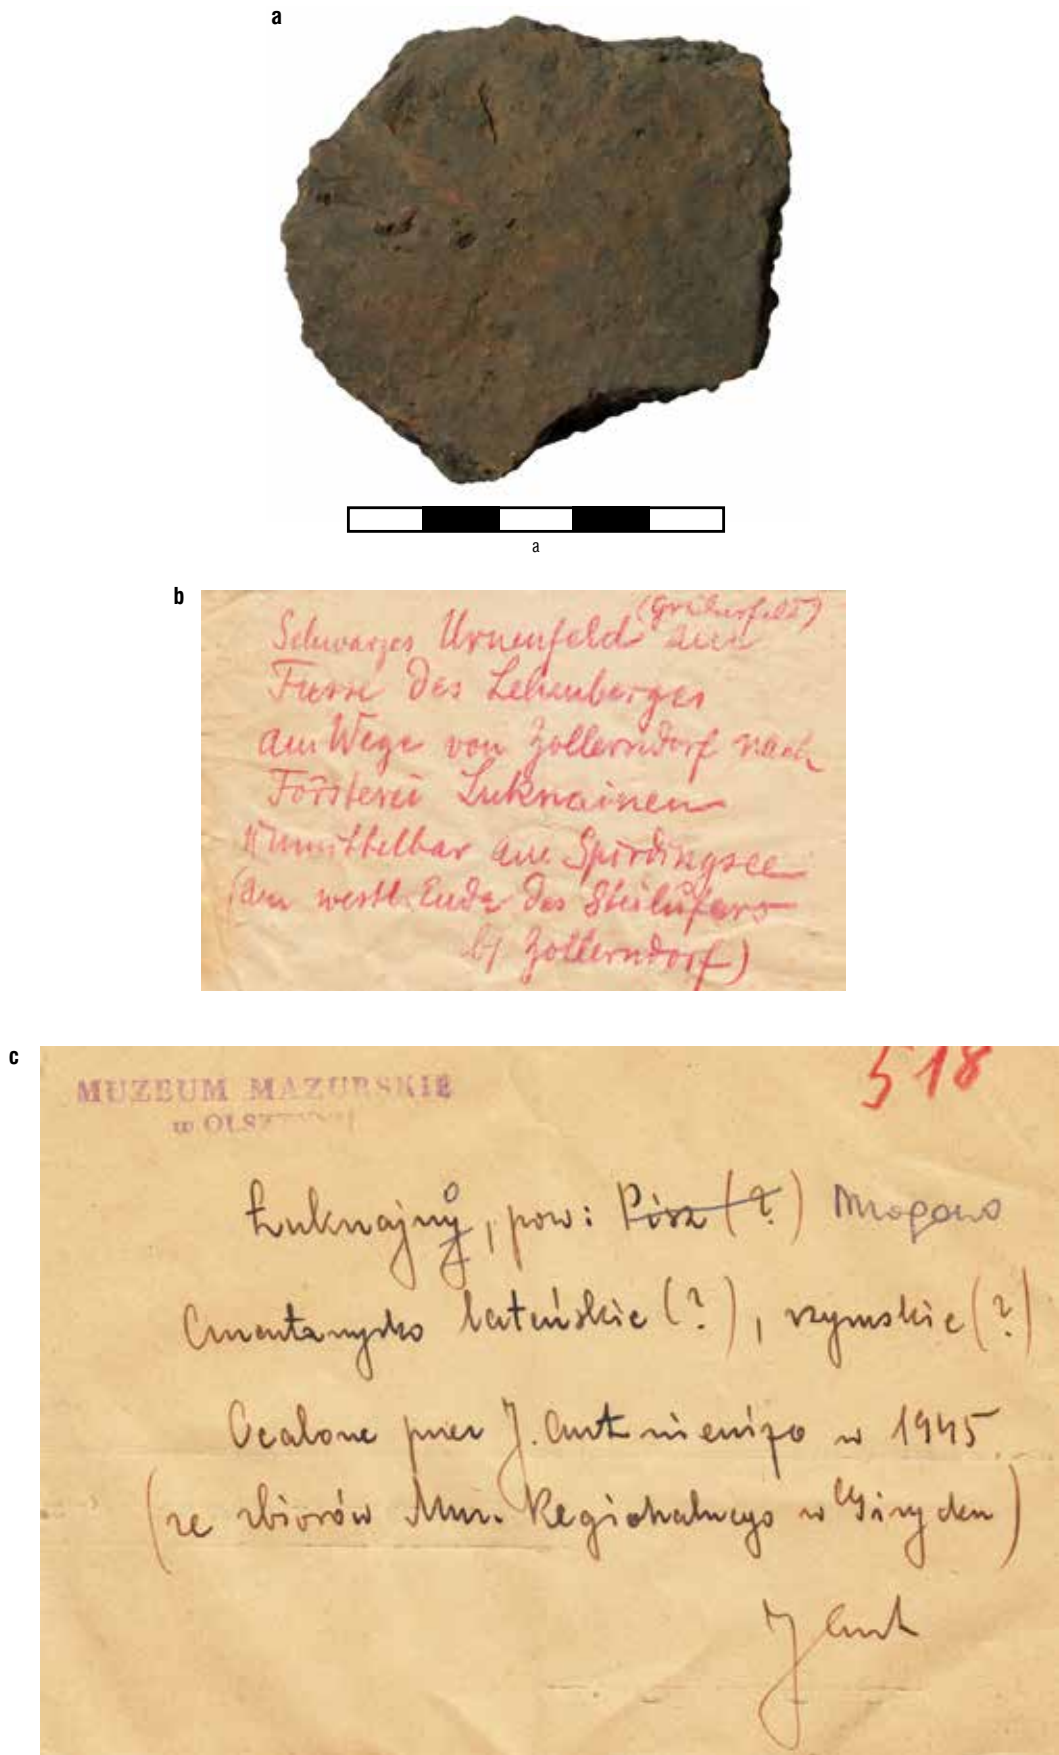 a
a
b
Schwarzes Urnenfeld (Gräberfeld) am
Fusse des Lehmberges
am Wege von Zollerndorf nach
Försterei Luknainen
unmittelbar am Spirdingsee
(am westl. Ende des Steilufers
bj Zollerndorf)
c
MUZEUM MAZURSKIE
w OLSZ
518
Łuknajny, pow: Pisz (?) Mrągowo
Cmentarzysko lateńskie (?), rzymskie (?)
Ocalone przez J. Antoniewicza w 1945
(ze zbiorów Muz. Regionalnego w Giżycku)
J Ant